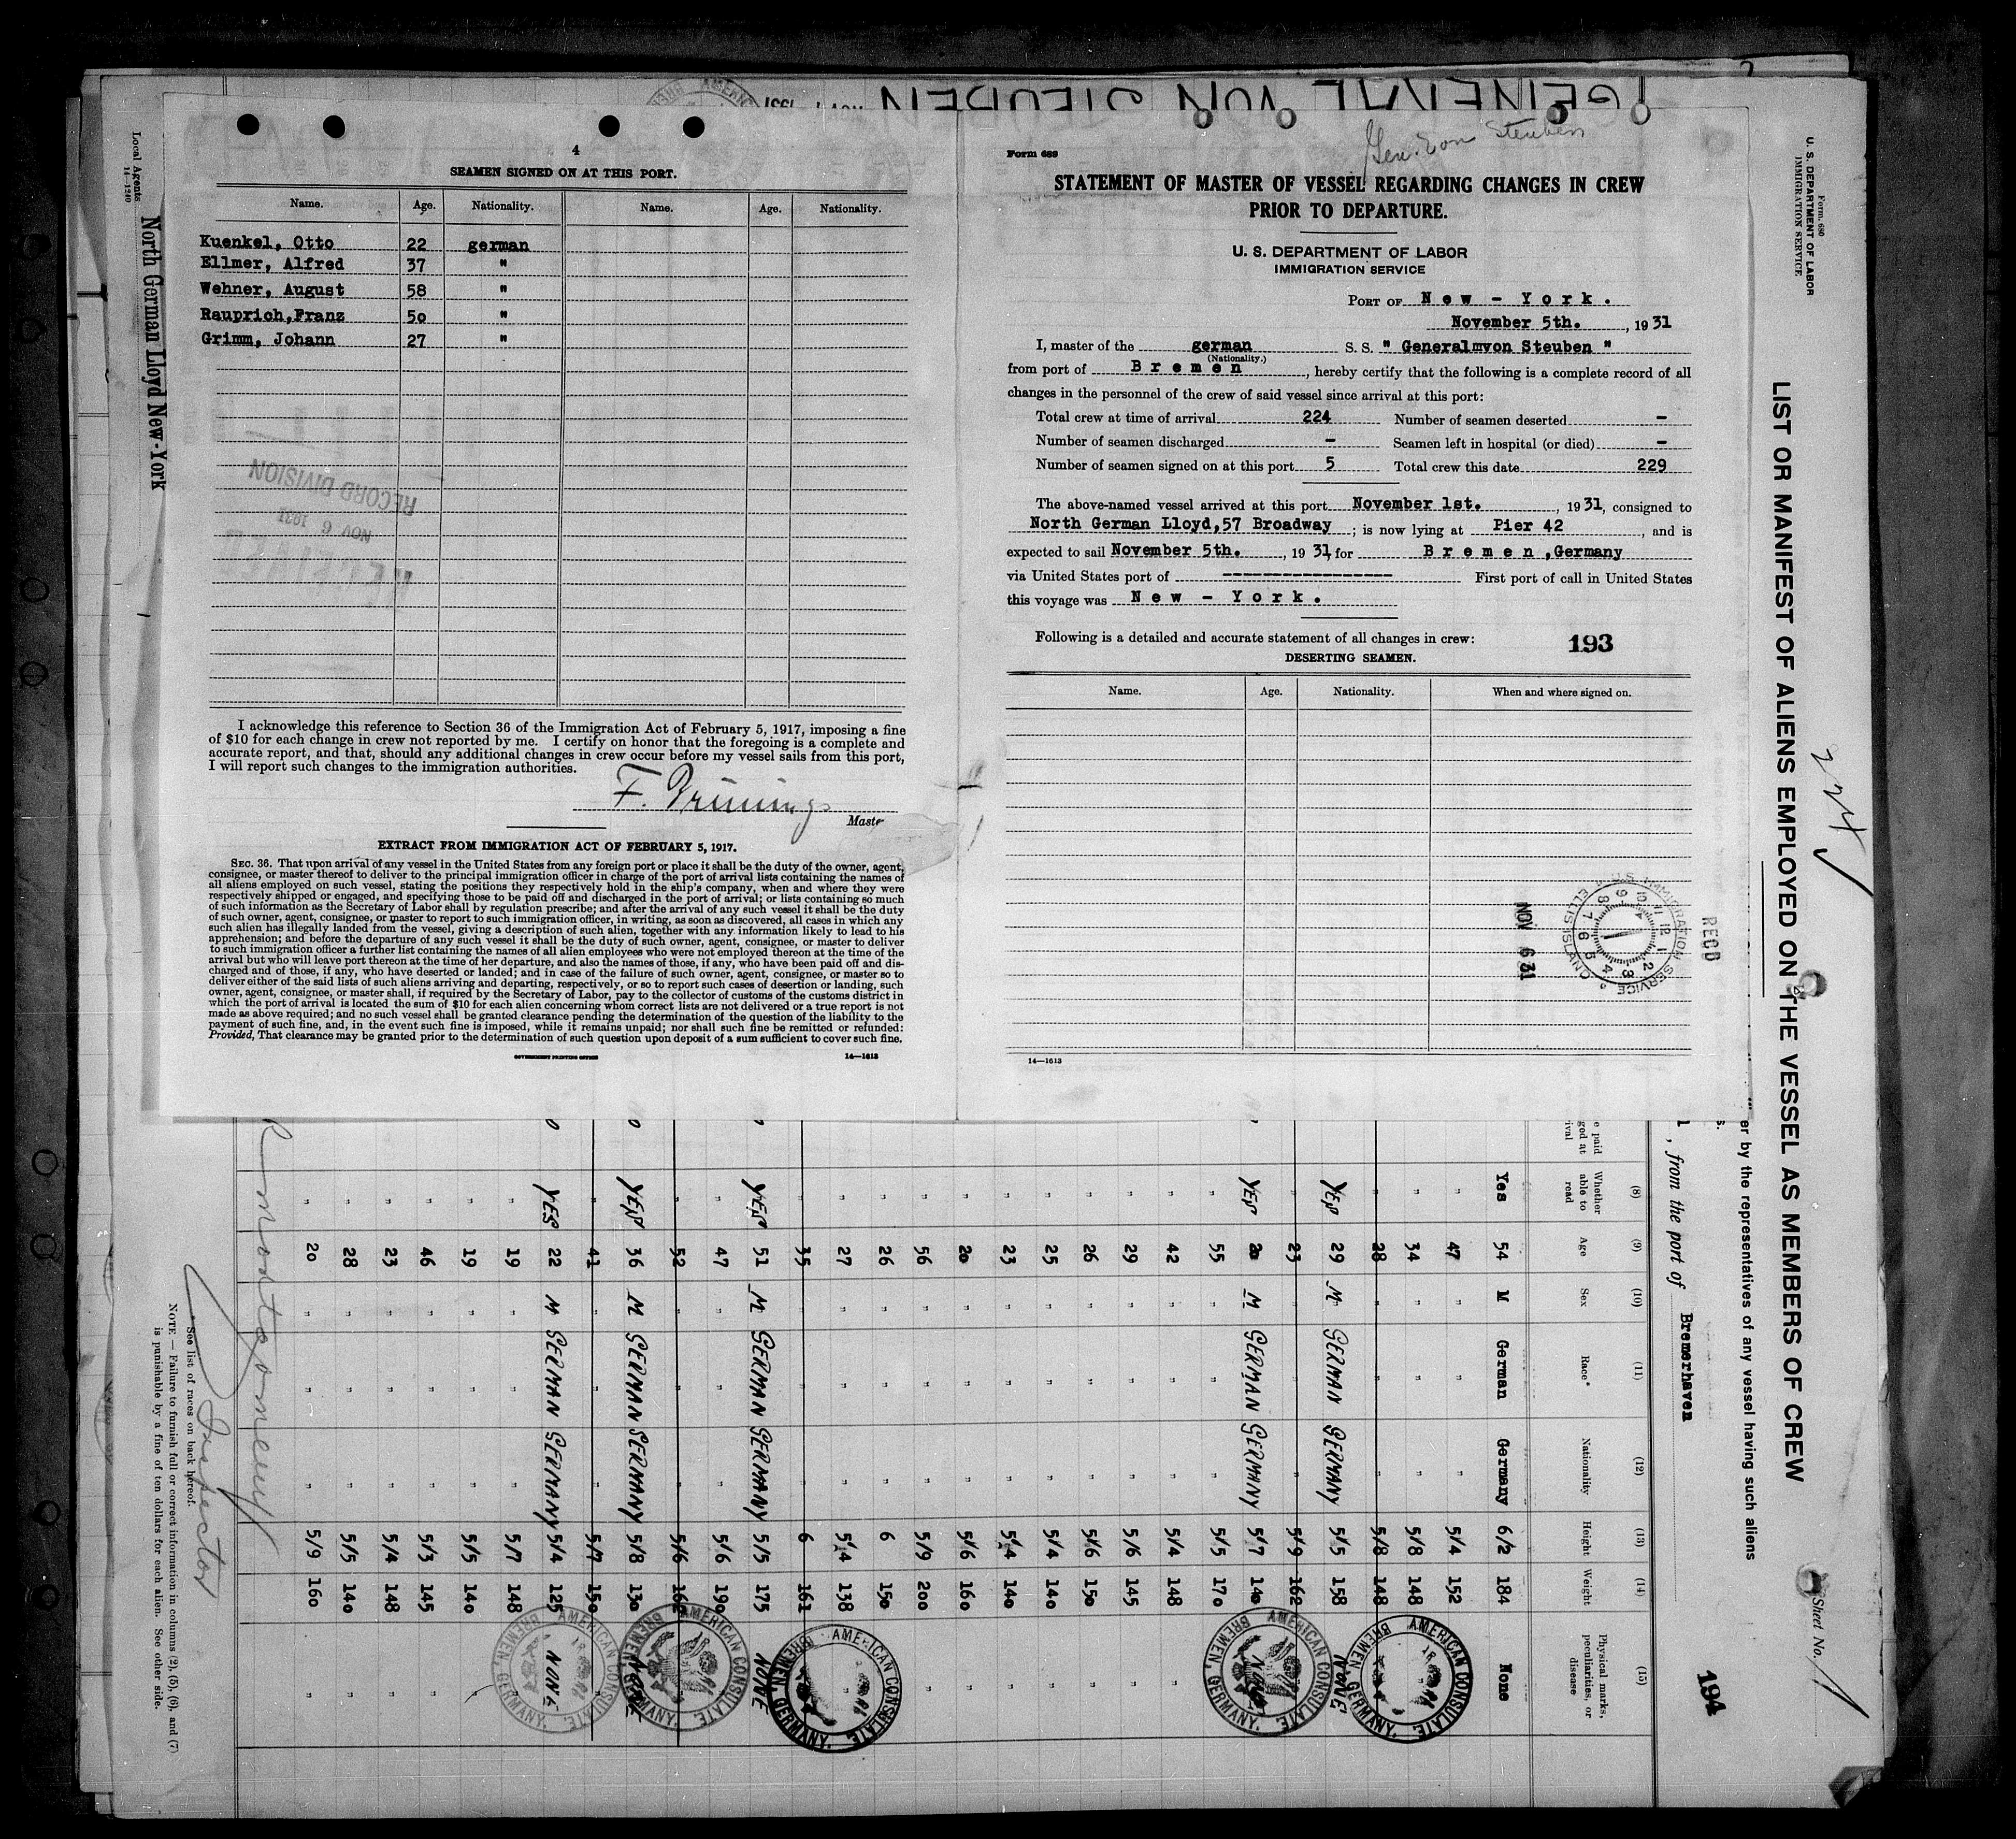 GENERAL VON STEUBEN
4
SEAMEN SIGNED ON AT THIS PORT.
Name. Age. Nationality. Name. Age. Nationality.
Kuenkel, Otto 22 german
Ellmer, Alfred 37 "
Wehner, August 58 "
Rauprich,Franz 50 "
Grimm, Johann 27 "
RECORD DIVISION
NOV 6 1931
RECEIVED
I acknowledge this reference to Section 36 of the Immigration Act of February 5, 1917, imposing a fine
of $10 for each change in crew not reported by me. I certify on honor that the foregoing is a complete and
accurate report, and that, should any additional changes in crew occur before my vessel sails from this port,
I will report such changes to the immigration authorities.
F. Brünings
Maste
EXTRACT FROM IMMIGRATION ACT OF FEBRUARY 5, 1917.
SEC. 36. That upon arrival of any vessel in the United States from any foreign port or place it shall be the duty of the owner, agent,
consignee, or master thereof to deliver to the principal immigration officer in charge of the port of arrival lists containing the names of
all aliens employed on such vessel, stating the positions they respectively hold in the ship's company, when and where they were
respectively shipped or engaged, and specifying those to be paid off and discharged in the port of arrival; or lists containing so much
of such information as the Secretary of Labor shall by regulation prescribe; and after the arrival of any such vessel it shall be the duty
of such owner, agent, consignee, or master to report to such immigration officer, in writing, as soon as discovered, all cases in which any
such alien has illegally landed from the vessel, giving a description of such alien, together with any information likely to lead to his
apprehension; and before the departure of any such vessel it shall be the duty of such owner, agent, consignee, or master to deliver
to such immigration officer a further list containing the names of all alien employees who were not employed thereon at the time of the
arrival but who will leave port thereon at the time of her departure, and also the names of those, if any, who have been paid off and dis-
charged and of those, if any, who have deserted or landed; and in case of the failure of such owner, agent, consignee, or master so to
deliver either of the said lists of such aliens arriving and departing, respectively, or so to report such cases of desertion or landing, such
owner, agent, consignee, or master shall, if required by the Secretary of Labor, pay to the collector of customs of the customs district in
which the port of arrival is located the sum of $10 for each alien concerning whom correct lists are not delivered or a true report is not
made as above required; and no such vessel shall be granted clearance pending the determination of the question of the liability to the
payment of such fine, and, in the event such fine is imposed, while it remains unpaid; nor shall such fine be remitted or refunded:
Provided, That clearance may be granted prior to the determination of such question upon deposit of a sum sufficient to cover such fine.
GOVERNMENT PRINTING OFFICE 14—1613
Gen. Von Steuben
Form 689
STATEMENT OF MASTER OF VESSEL REGARDING CHANGES IN CREW
PRIOR TO DEPARTURE.
U. S. DEPARTMENT OF LABOR
IMMIGRATION SERVICE
PORT OF New - York.
November 5th. , 1931
I, master of the german S. S. " Generalmvon Steuben "
(Nationality.)
from port of Bremen , hereby certify that the following is a complete record of all
changes in the personnel of the crew of said vessel since arrival at this port:
Total crew at time of arrival 224 Number of seamen deserted -
Number of seamen discharged - Seamen left in hospital (or died) -
Number of seamen signed on at this port 5 Total crew this date 229
The above-named vessel arrived at this port November 1st. , 1931, consigned to
North German Lloyd,57 Broadway ; is now lying at Pier 42 , and is
expected to sail November 5th. , 1931, for Bremen,Germany
via United States port of ------------------ First port of call in United States
this voyage was New - York.
Following is a detailed and accurate statement of all changes in crew: 193
DESERTING SEAMEN.
Name. Age. Nationality. When and where signed on.
U.S. IMMIGRATION SERVICE
ELLIS ISLAND
1 2 3 4 5 6 7 8 9 10 11 12
NOV 6 31
RECD
14—1613
Local Agents
14—1240
North German Lloyd New-York
Form 680
U. S. DEPARTMENT OF LABOR
IMMIGRATION SERVICE
LIST OR MANIFEST OF ALIENS EMPLOYED ON THE VESSEL AS MEMBERS OF CREW
224
er by the representatives of any vessel having such aliens
, from the port of Bremerhaven
Sheet No. 1
194
(8) (9) (10) (11) (12) (13) (14) (15)
Whether able to read Age Sex Race* Nationality Height Weight Physical marks, peculiarities, or disease
Yes 54 M German Germany 6/2 184 None
" 47 " " " 5/4 152 "
" 34 " " " 5/8 148
" 28 " " " 5/8 148
YES 29 M GERMAN GERMANY 5/5 158 NONE
" 23 " " " 5/9 162
YES 20 M GERMAN GERMANY 5/7 140 NONE
" 55 " " " 5/5 170
" 42 " " " 5/4 148 "
" 29 " " " 5/6 145 "
" 26 " " " 5/6 150 "
" 25 " " " 5/4 140 "
" 23 " " " 5/4 140 "
" 20 " " " 5/6 160 "
" 56 " " " 5/9 200 "
" 26 " " " 6 150 "
" 27 " " " 5/4 138 "
" 35 " " " 6 161
YES 51 M GERMAN GERMANY 5/5 175 NONE
" 47 " " " 5/6 190
" 52 " " " 5/6 160
YES 36 M GERMAN GERMANY 5/8 130 NONE
" 41 " " " 5/7 150
YES 22 M GERMAN GERMANY 5/4 125 NONE
" 19 " " " 5/7 148 "
" 19 " " " 5/5 140 "
" 46 " " " 5/3 145 "
" 23 " " " 5/4 148 "
" 28 " " " 5/5 140 "
" 20 " " " 5/9 160 "
AMERICAN CONSULATE.
BREMEN, GERMANY.
AMERICAN CONSULATE.
BREMEN, GERMANY.
AMERICAN CONSULATE.
BREMEN, GERMANY.
AMERICAN CONSULATE.
BREMEN, GERMANY.
AMERICAN CONSULATE.
BREMEN, GERMANY.
R Montgomery
Inspector
*See list of races on back hereof.
NOTE.—Failure to furnish full or correct information in columns (2), (5), (6), and (7)
is punishable by a fine of ten dollars for each alien. See other side.